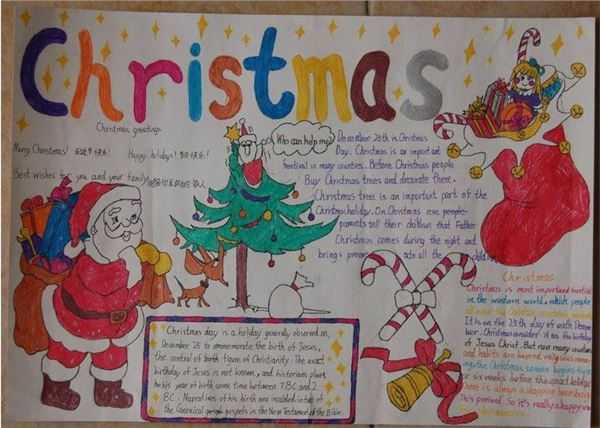 Christmas
Christmas greetings
Merry Christmas!
Happy holidays!
Best wishes for you and your family
Who can help me?
December 25th is Christmas
Day. Christmas is an important
festival in many countries. Before Christmas people
Buy Christmas trees and decorate there.
Christmas tree is an important part of the
Christmas holiday. On Christmas eve people
parents tell their children that Father
Christmas comes during the night and
brings presents all the
Christmas
Christmas is most important festival
in the western world
It is on the 25th day of each Decem
ber. Christmas consider it as the birthday
of Jesus Christ. But now many customs
and habits are beyond religious
ing the Christmas season begins
or six weeks before the exact holiday
There is always a shopping boom during
this period. So it's really a happy
Christmas day is a holiday generally observed on
December 25 to commemorate the birth of Jesus,
the central of birth town of Christianity. The exact
birthday of Jesus is not known, and historians place
his year of birth some time between 7 BC and 2
BC. Narratives of his birth are included in two of
the Canonical gospels in the New Testament of the Bible.